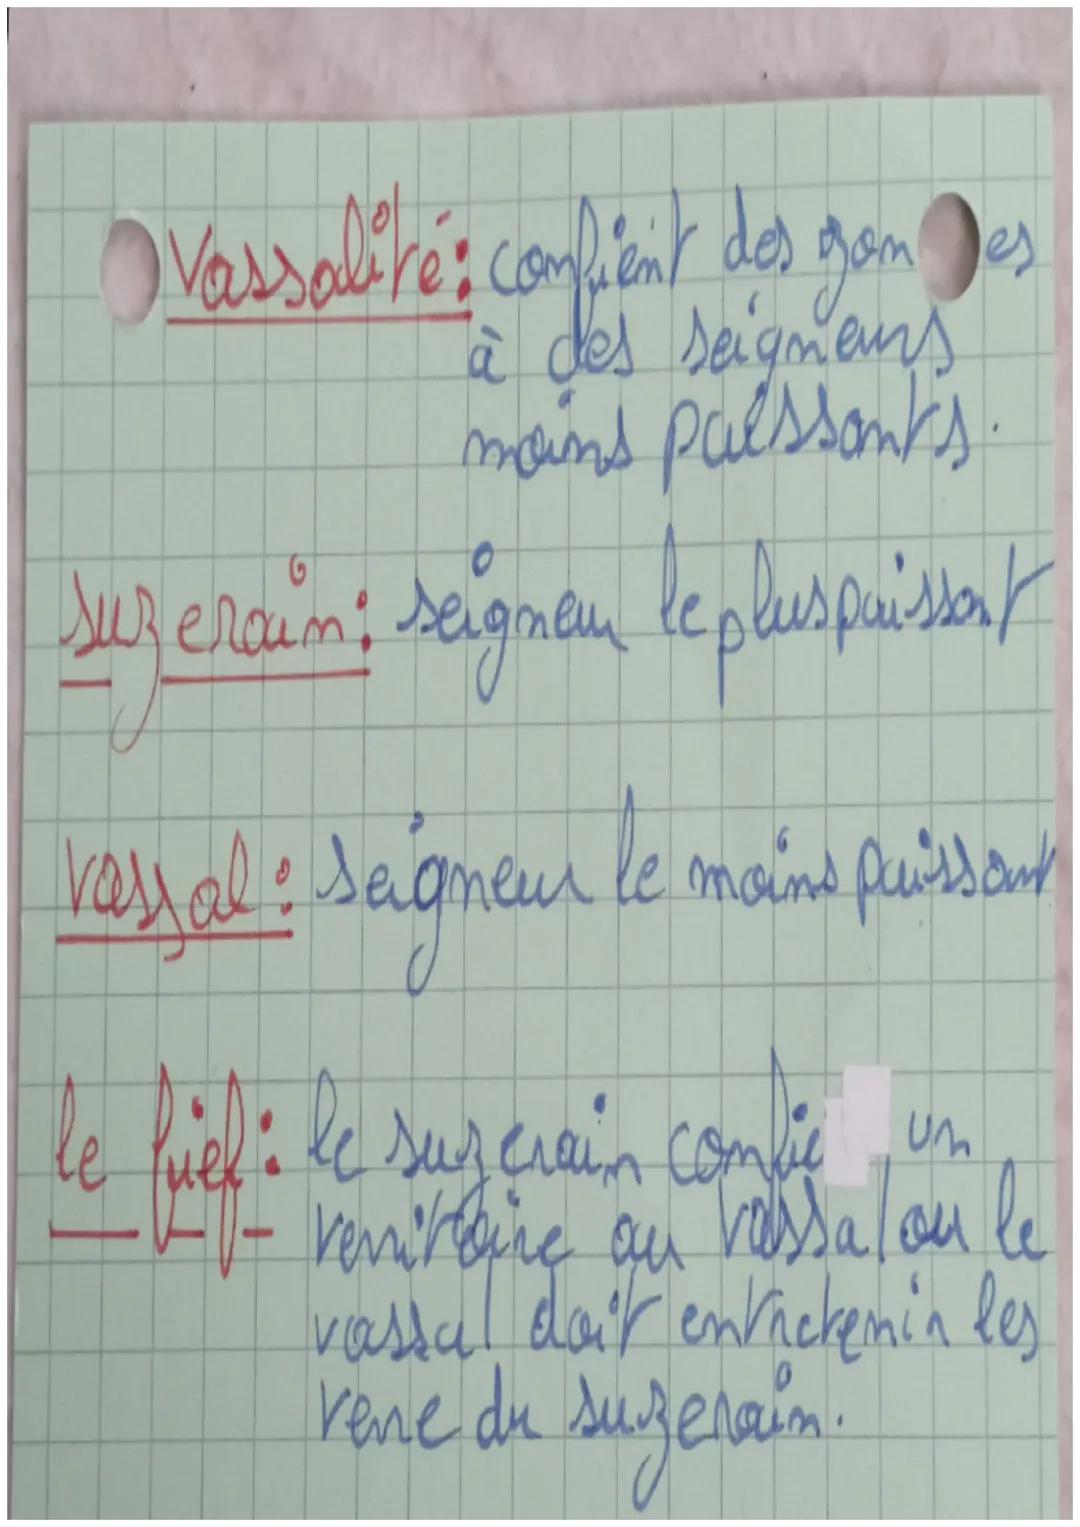 vassalité: confient des zones
à des seigneurs
moins puissants.
suzerain: seigneur le plus puissant
vassal: seigneur le moins puissant
le fief: le suzerain confie un
territoire au vassal ou le
vassal doit entretenir les
terre du suzerain.